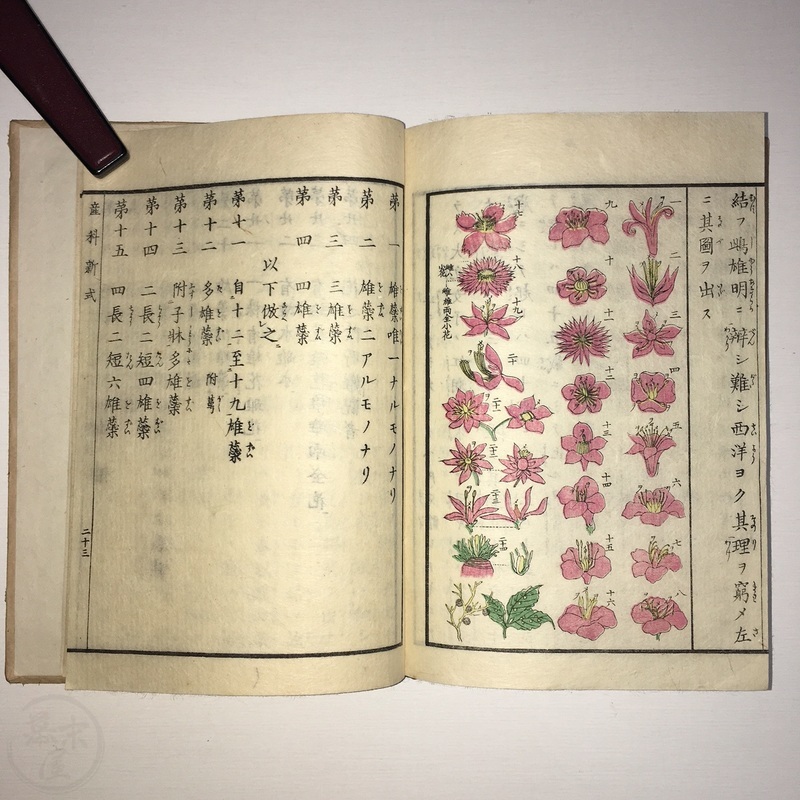 結フ雌雄明ニ辨シ難シ西洋ヨク其理ヲ窮メ左
ニ其圖ヲ出ス
一
二
三
四
五
六
七
八
九
十
十一
十二
十三
十四
十五
十六
十七
十八
雌雄兩全小花
十九
二十
二十一
二十二
二十三
二十四
第一 雄蘂唯一ナルモノナリ
第二 雄蘂二アルモノナリ
第三 三雄蘂
第四 四雄蘂
以下倣之
第十一 自十二至十九雄蘂
第十二 多雄蘂 附萼
第十三 附子牀多雄蘂
第十四 二長二短四雄蘂
第十五 四長二短六雄蘂
産科新式 二十三